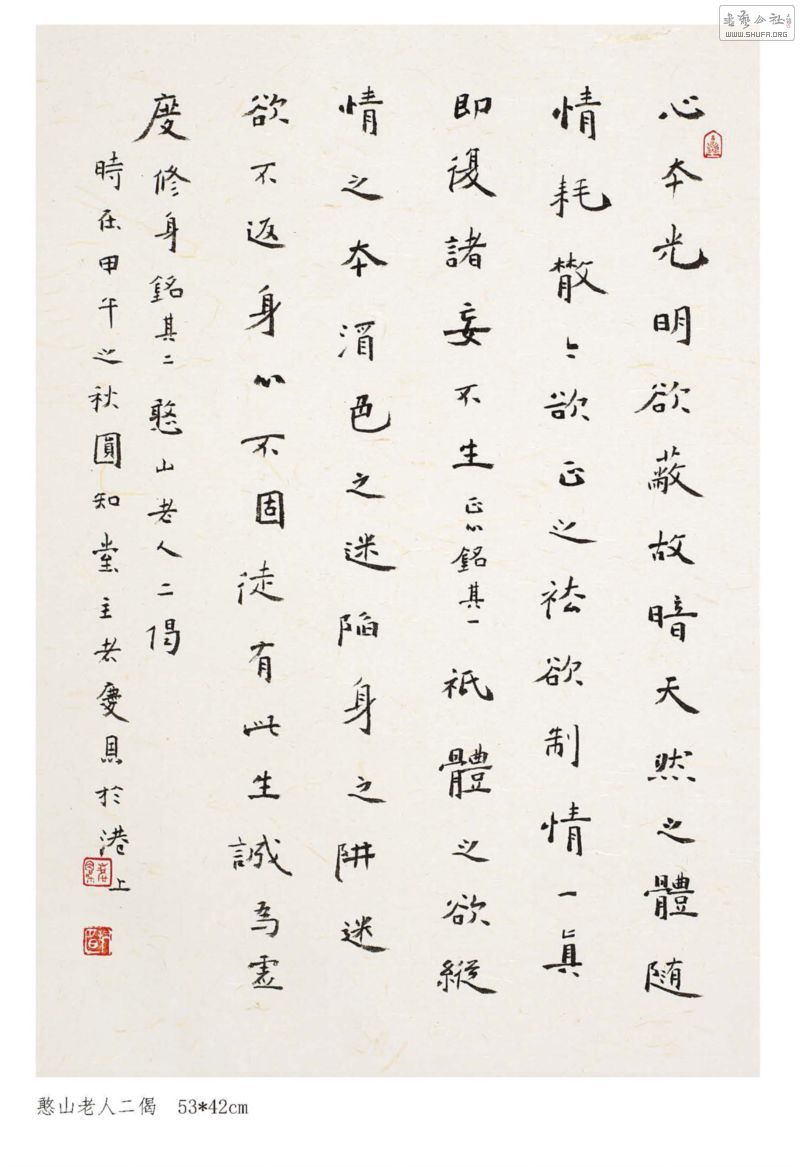 心本光明欲蔽故暗天然之體隨
情耗散〻欲正之祛欲制情一真
即復諸妄不生正心銘其一祇體之欲縱
情之本溺色之迷陷身之阱迷
欲不返身心不固徒有此生誠為虛
度修身銘其二憨山老人二偈
時在甲午之秋圓知堂主老慶恩於港上
憨山老人二偈 53*42cm
書藝公社
WWW.SHUFA.ORG